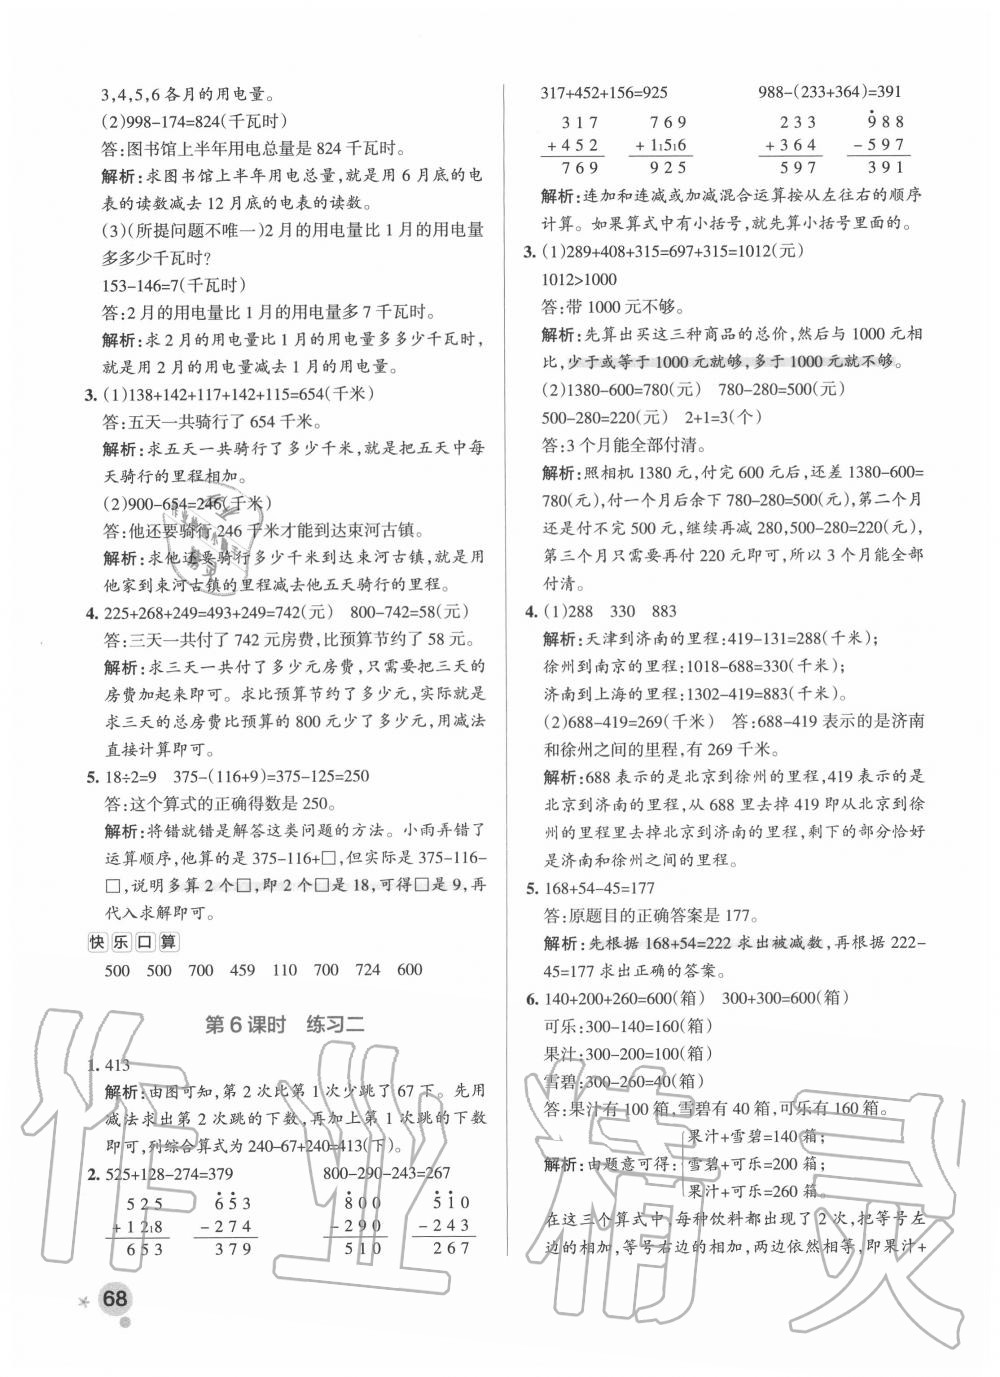 3,4,5,6各月的用电量。
(2)998-174=824(千瓦时)
答:图书馆上半年用电总量是824千瓦时。
解析:求图书馆上半年用电总量,就是用6月底的电
表的读数减去12月底的电表的读数。
(3)(所提问题不唯一)2月的用电量比1月的用电量
多多少千瓦时?
153-146=7(千瓦时)
答:2月的用电量比1月的用电量多7千瓦时。
解析:求2月的用电量比1月的用电量多多少千瓦时,
就是用2月的用电量减去1月的用电量。
3. (1)138+142+117+142+115=654(千米)
答:五天一共骑行了654千米。
解析:求五天一共骑行了多少千米,就是把五天中每
天骑行的里程相加。
(2)900-654=246(千米)
答:他还要骑行246千米才能到达束河古镇。
解析:求他还要骑行多少千米到达束河古镇,就是用
他家到束河古镇的里程减去他五天骑行的里程。
4. 225+268+249=493+249=742(元) 800-742=58(元)
答:三天一共付了742元房费,比预算节约了58元。
解析:求三天一共付了多少元房费,只需要把三天的
房费加起来即可。求比预算节约了多少元,实际就是
求三天的总房费比预算的800元少了多少元,用减法
直接计算即可。
5. 18÷2=9 375-(116+9)=375-125=250
答:这个算式的正确得数是250。
解析:将错就错是解答这类问题的方法。小雨弄错了
运算顺序,他算的是375-116+□,但实际是375-116-
□,说明多算2个□,即2个□是18,可得□是9,再
代入求解即可。
快乐口算
500 500 700 459 110 700 724 600
第6课时 练习二
1. 413
解析:由图可知,第2次比第1次少跳了67下。先用
减法求出第2次跳的下数,再加上第1次跳的下数
即可,列综合算式为240-67+240=413(下)。
2. 525+128-274=379 800-290-243=267
525 653 800 510
+128 -274 -290 -243
653 379 510 267
68
317+452+156=925 988-(233+364)=391
317 769 233 988
+452 +156 +364 -597
769 925 597 391
解析:连加和连减或加减混合运算按从左往右的顺序
计算。如果算式中有小括号,就先算小括号里面的。
3. (1)289+408+315=697+315=1012(元)
1012>1000
答:带1000元不够。
解析:先算出买这三种商品的总价,然后与1000元相
比,少于或等于1000元就够,多于1000元就不够。
(2)1380-600=780(元) 780-280=500(元)
500-280=220(元) 2+1=3(个)
答:3个月能全部付清。
解析:照相机1380元,付完600元后,还差1380-600=
780(元),付一个月后余下780-280=500(元),第二个月
还是付不完500元,继续再减280,500-280=220(元),
第三个月只需要再付220元即可,所以3个月能全部
付清。
4. (1)288 330 883
解析:天津到济南的里程:419-131=288(千米);
徐州到南京的里程:1018-688=330(千米);
济南到上海的里程:1302-419=883(千米)。
(2)688-419=269(千米) 答:688-419表示的是济南
和徐州之间的里程,有269千米。
解析:688表示的是北京到徐州的里程,419表示的是
北京到济南的里程,从688里去掉419即从北京到徐
州的里程里去掉北京到济南的里程,剩下的部分恰好
是济南和徐州之间的里程。
5. 168+54-45=177
答:原题目的正确答案是177。
解析:先根据168+54=222求出被减数,再根据222-
45=177求出正确的答案。
6. 140+200+260=600(箱) 300+300=600(箱)
可乐:300-140=160(箱)
果汁:300-200=100(箱)
雪碧:300-260=40(箱)
答:果汁有100箱,雪碧有40箱,可乐有160箱。
果汁+雪碧=140箱;
解析:由题意可得:雪碧+可乐=200箱;
果汁+可乐=260箱。
在这三个算式中,每种饮料都出现了2次,把等号左
边的相加,等号右边的相加,两边依然相等,即果汁+
作业精灵